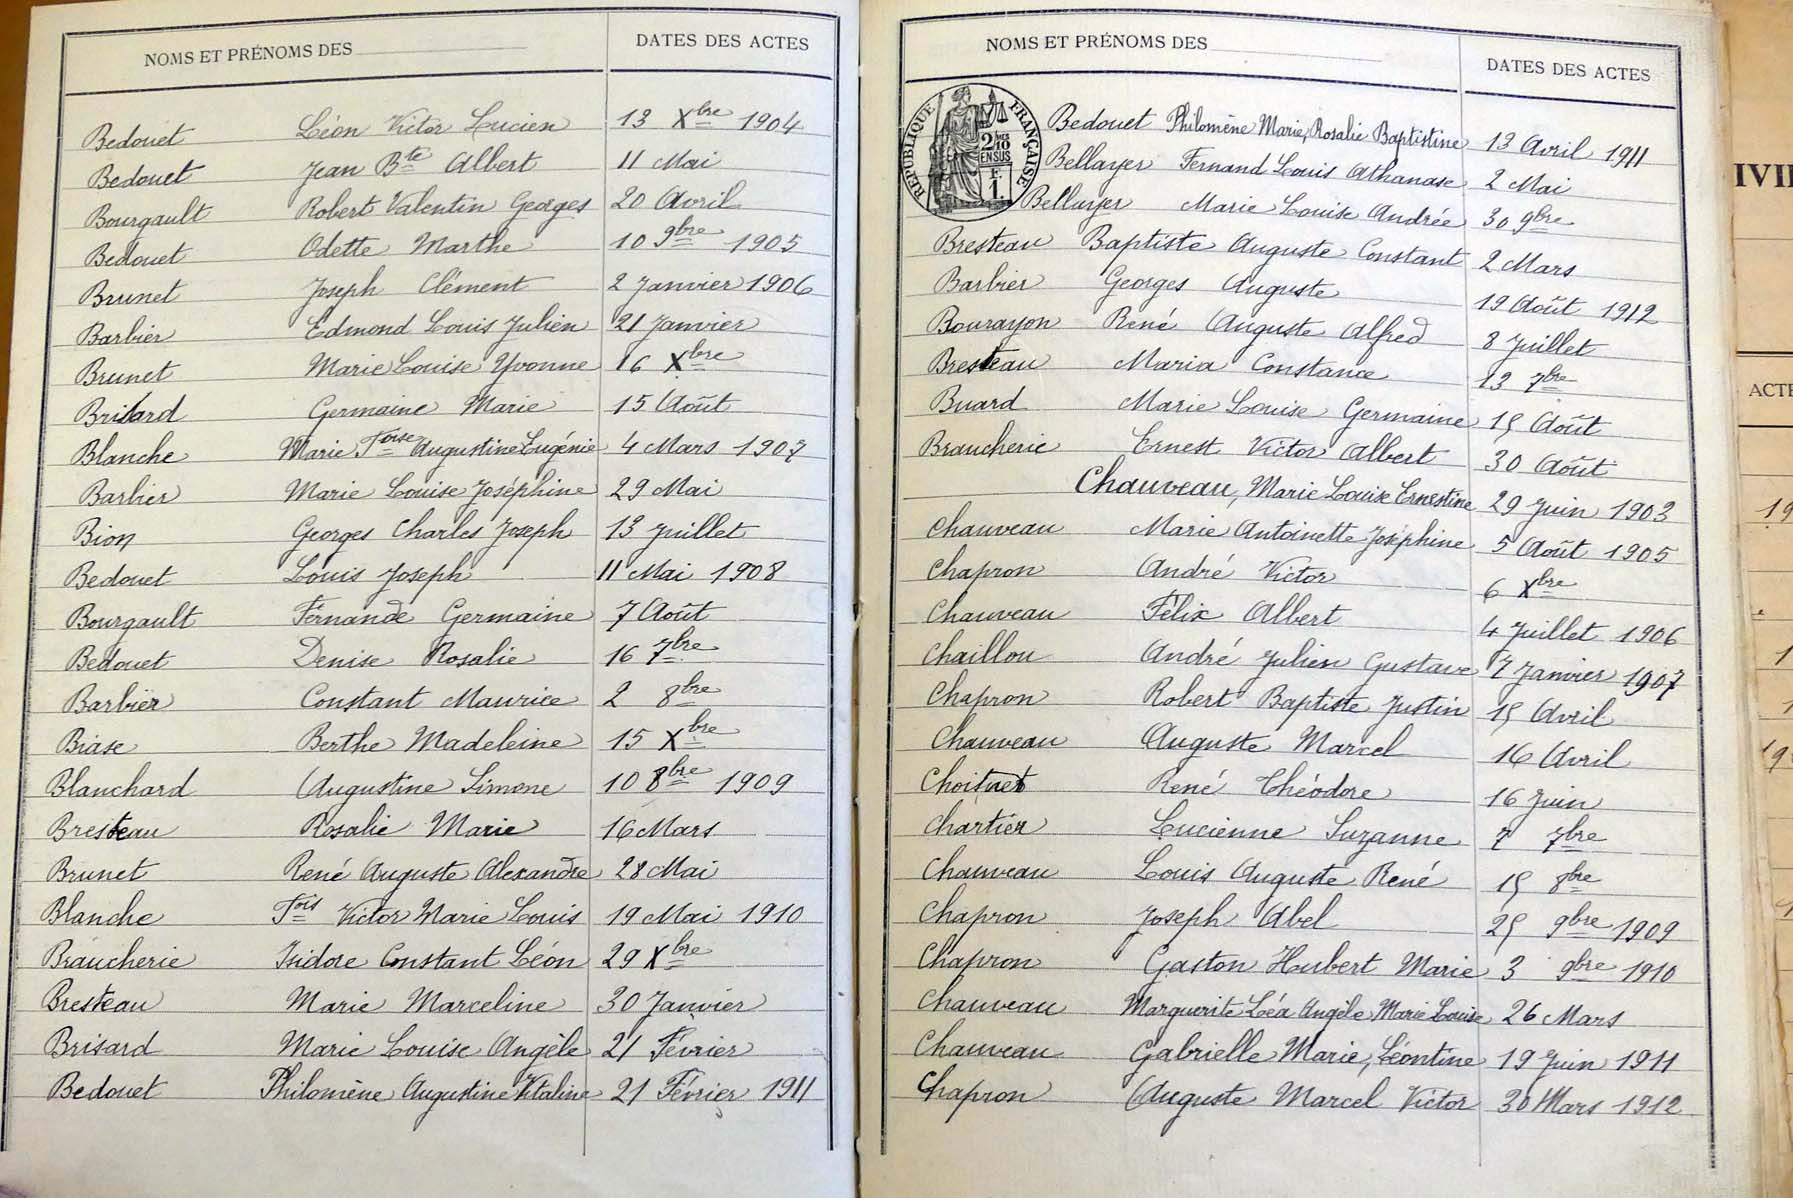 NOMS ET PRÉNOMS DES DATES DES ACTES
Bedouet Léon Victor Lucien 13 Xbre 1904
Bedouet Jean Bte Albert 11 Mai
Bourgault Robert Valentin Georges 20 Avril
Bedouet Odette Marthe 10 9bre 1905
Brunet Joseph Clément 2 Janvier 1906
Barbier Edmond Louis Julien 21 Janvier
Brunet Marie Louise Yvonne 16 Xbre
Brisard Germaine Marie 15 Août
Blanche Marie Foise Augustine Eugénie 4 Mars 1907
Barbier Marie Louise Joséphine 29 Mai
Bion Georges Charles Joseph 13 Juillet
Bedouet Louis Joseph 11 Mai 1908
Bourgault Fernande Germaine 7 Août
Bedouet Denise Rosalie 16 7bre
Barbier Constant Maurice 2 8bre
Biase Berthe Madeleine 15 Xbre
Blanchard Augustine Simone 10 8bre 1909
Bresteau Rosalie Marie 16 Mars
Brunet René Auguste Alexandre 28 Mai
Blanche Fois Victor Marie Louis 19 Mai 1910
Braucherie Isidore Constant Léon 29 Xbre
Bresteau Marie Marceline 30 Janvier
Brisard Marie Louise Angèle 21 Février
Bedouet Philomène Augustine Vitaline 21 Février 1911
NOMS ET PRÉNOMS DES DATES DES ACTES
RÉPUBLIQUE FRANÇAISE
2/10
EN SUS
F.
1.
Bedouet Philomène Marie, Rosalie Baptistine 13 Avril 1911
Bellayer Fernand Louis Athanase 2 Mai
Bellayer Marie Louise Andrée 30 9bre
Bresteau Baptiste Auguste Constant 2 Mars
Barbier Georges Auguste 19 Août 1912
Bourayon René Auguste Alfred 8 Juillet
Bresteau Maria Constance 13 7bre
Buard Marie Louise Germaine 15 Août
Braucherie Ernest Victor Albert 30 Août
Chauveau, Marie Louise Ernestine 29 Juin 1903
Chauveau Marie Antoinette Joséphine 5 Août 1905
Chapron André Victor 6 Xbre
Chauveau Félix Albert 4 Juillet 1906
Chaillou André Julien Gustave 7 Janvier 1907
Chapron Robert Baptiste Justin 15 Avril
Chauveau Auguste Marcel 16 Avril
Choisnet René Théodore 16 Juin
Chartier Lucienne Suzanne 7 7bre
Chauveau Louis Auguste René 15 8bre
Chapron Joseph Abel 25 9bre 1909
Chapron Gaston Hubert Marie 3 9bre 1910
Chauveau Marguerite Léa Angèle Marie Louise 26 Mars
Chauveau Gabrielle Marie, Léontine 19 Juin 1911
Chapron Auguste Marcel Victor 30 Mars 1912